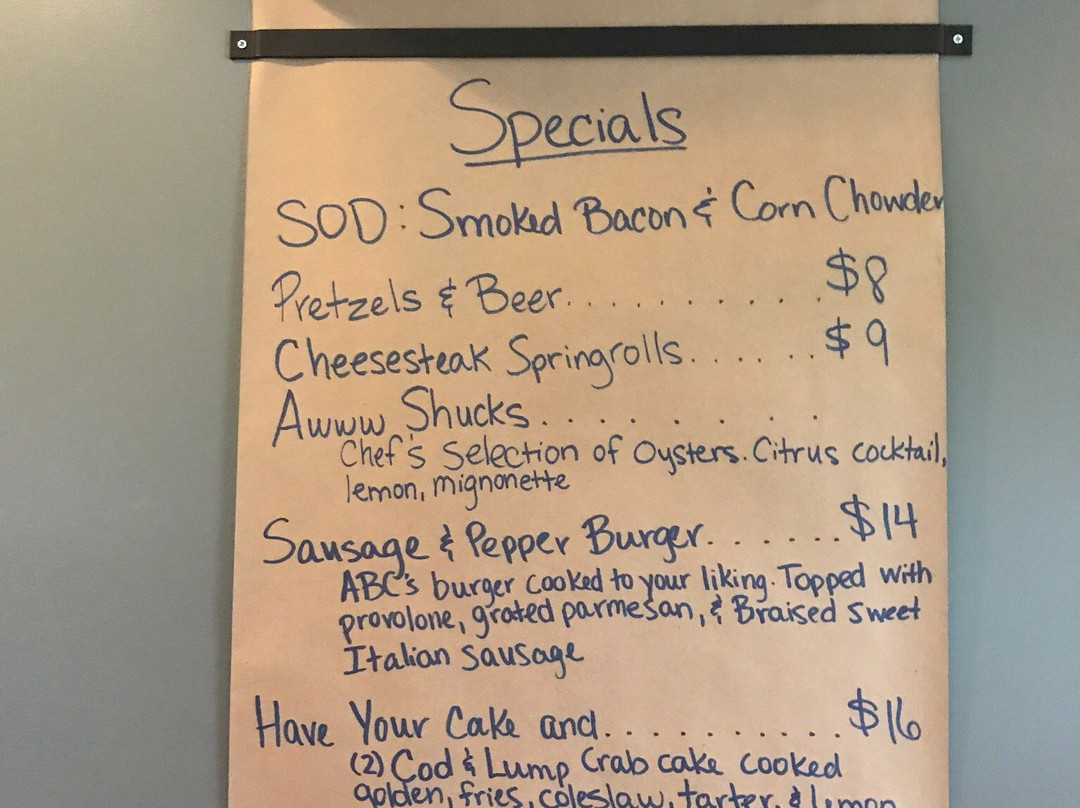 Specials
SOD: Smoked Bacon & Corn Chowder
Pretzels & Beer. . . . . . . . . . . $8
Cheesesteak Springrolls. . . . . . $9
Awww Shucks. . . . . . . .
Chef's Selection of Oysters. Citrus cocktail,
lemon, mignonette
Sausage & Pepper Burger. . . . . . . $14
ABC's burger cooked to your liking. Topped with
provolone, grated parmesan, & Braised sweet
Italian sausage
Have Your Cake and. . . . . . . . . . . $16
(2) Cod & Lump Crab cake cooked
golden, fries, coleslaw, tarter, & lemon